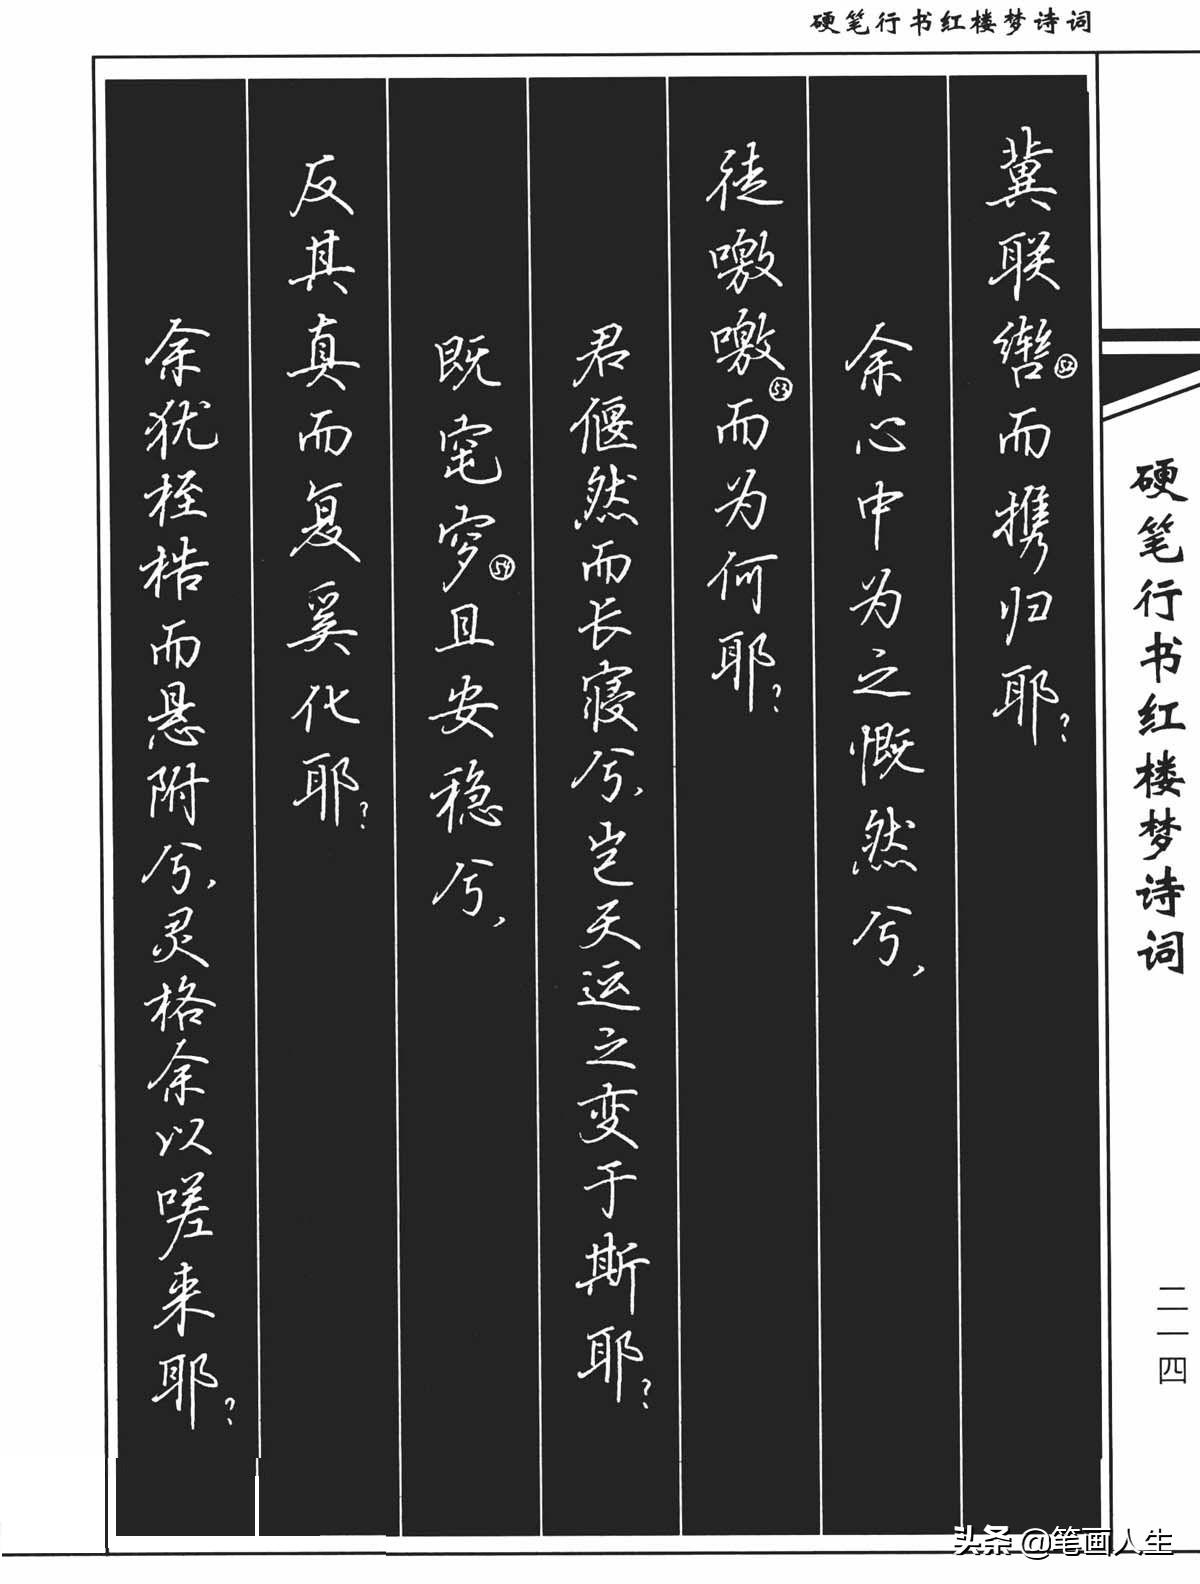 硬笔行书红楼梦诗词
冀联辔㊾而携归耶?
余心中为之慨然兮,
徒噭噭而为何耶?
君偃然而长寝兮,岂天运之变于斯耶?
既窀穸且安稳兮,
反其真而复奚化耶?
余犹桎梏而悬附兮,灵格余以嗟来耶?
硬笔行书红楼梦诗词
二一四
头条 @笔画人生